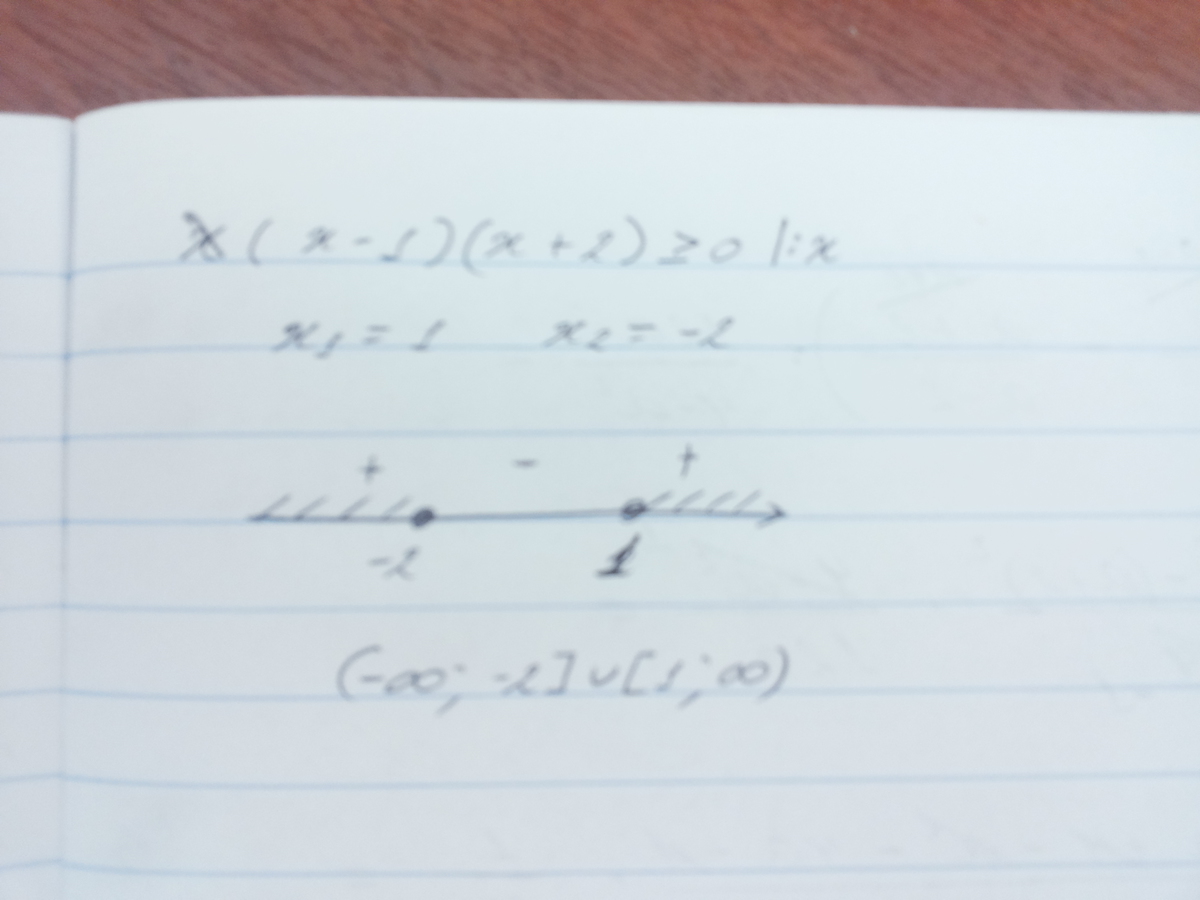 x(x-1)(x+2)≥0 |:x
x₁=1 x₂=-2
+ - +
-2 1
(-∞; -2]∪[1; ∞)